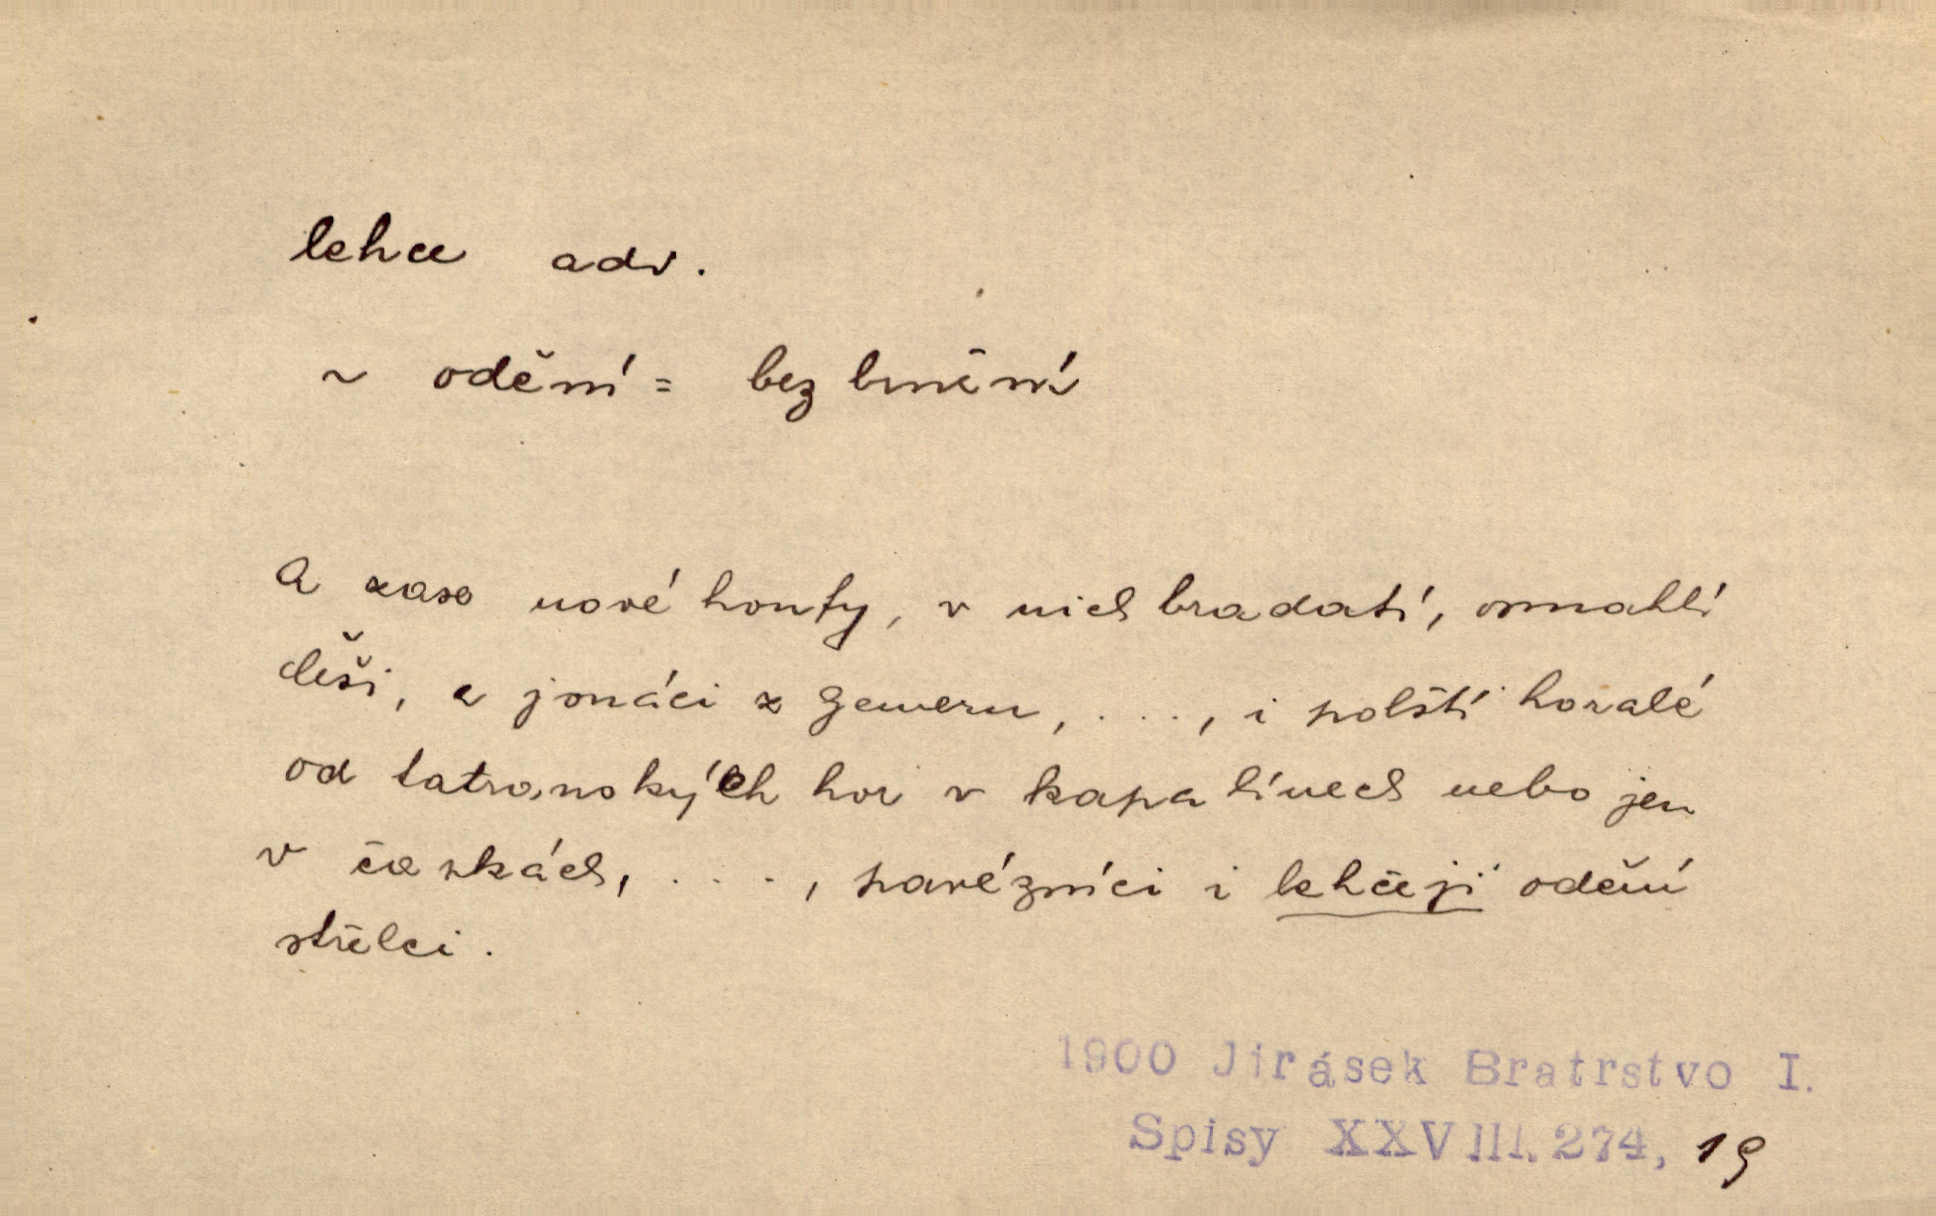 lehce adv.
~ oděni = bez brnění
A zase nové houfy, v nich bradatí, osmahlí
Češi, a jonáci z Gemeru, . . . , i polští horalé
od tatranských hor v kapalínech nebo jen
v čapkách, . . . , pavézníci i lehčeji oděni
střelci.
1900 Jirásek Bratrstvo I.
Spisy XXVIII. 274, 19